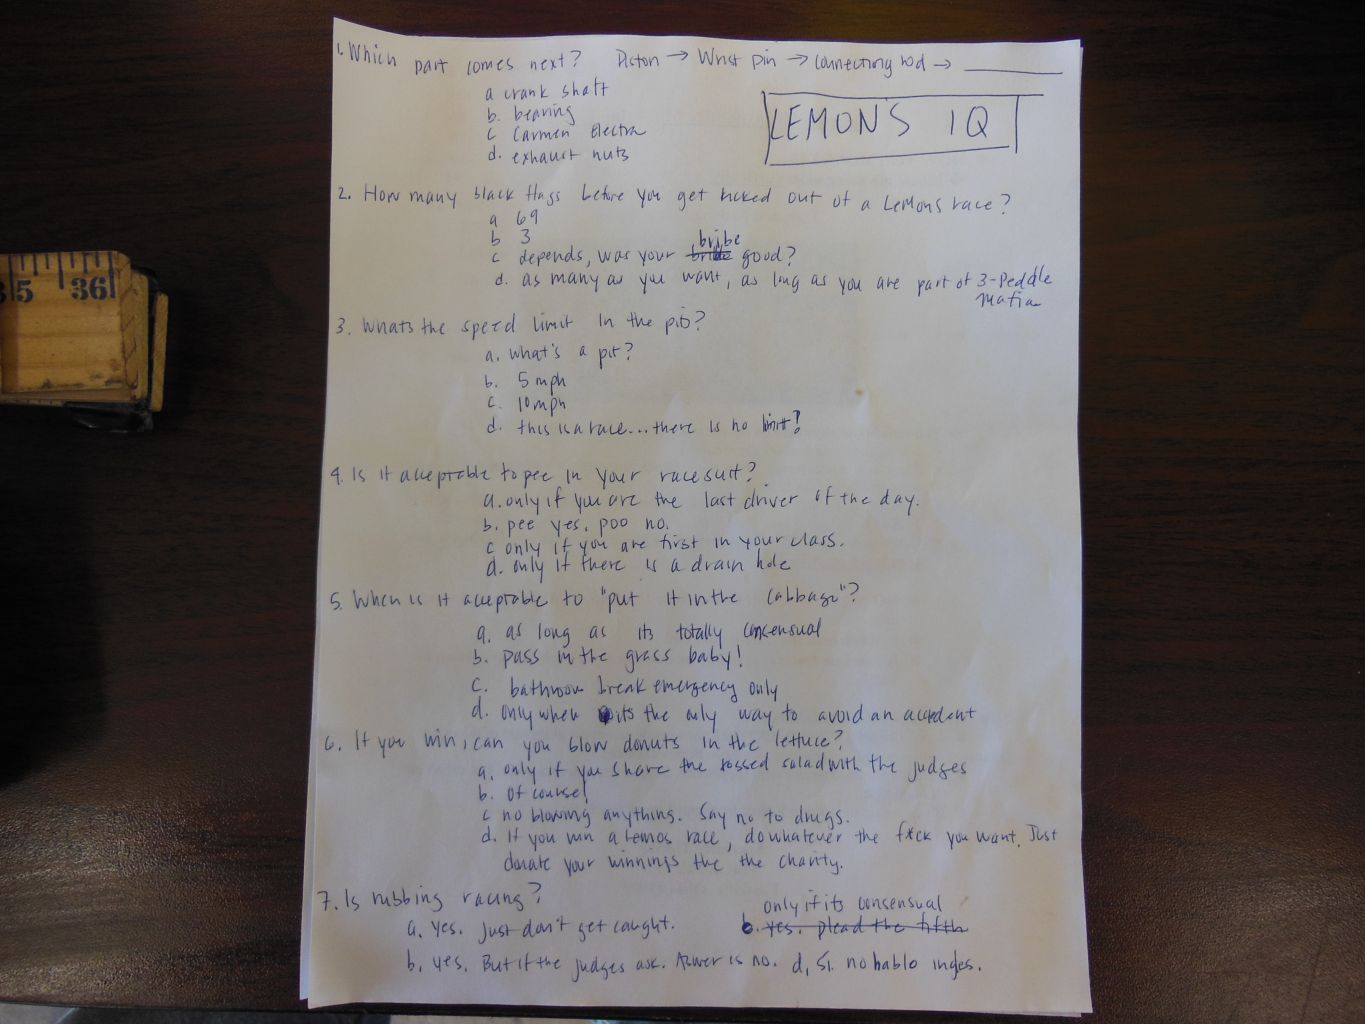 1. Which part comes next? Piston → Wrist pin → connecting rod → ____
a crank shaft
b. bearing
c Carmen Electra
d. exhaust nuts
LEMON'S IQ
2. How many black flags before you get kicked out of a LeMons race?
a 69
b 3
c depends, was your bribe good?
d. as many as you want, as long as you are part of 3-Peddle
Mafia
3. Whats the speed limit in the pit?
a. what's a pit?
b. 5 mph
c. 10 mph
d. this is a race... there is no limit!
4. Is it acceptable to pee in your race suit?
a. only if you are the last driver of the day.
b. pee yes, poo no.
c only if you are first in your class.
d. only if there is a drain hole
5. When is it acceptable to "put it in the cabbage"?
a. as long as its totally consensual
b. pass in the grass baby!
c. bathroom break emergency only
d. only when its the only way to avoid an accedent
6. If you win, can you blow donuts in the lettuce?
a. only if you share the tossed salad with the judges
b. Of course!
c no blowing anything. Say no to drugs.
d. If you win a Lemos race, do whatever the f*ck you want. Just
donate your winnings the the charity.
7. Is rubbing racing?
only if its consensual
a. yes. Just don't get caught. c. yes. plead the fifth
b. yes. But if the judges ask. Answer is no. d. Si. no hablo ingles.
35 36